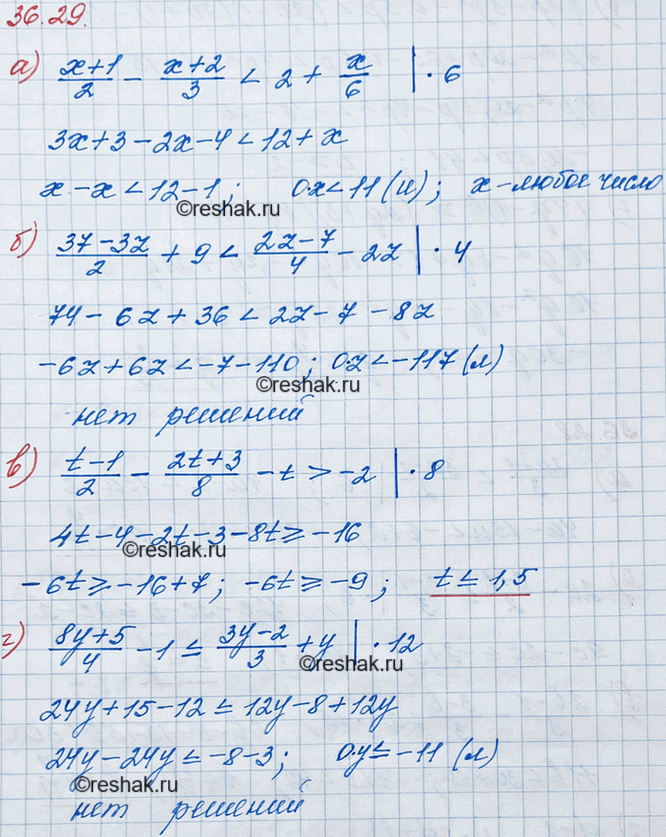 36.29.
а) (x+1)/2 - (x+2)/3 < 2 + x/6 | · 6
3x+3-2x-4<12+x
x-x<12-1; 0·x<11 (и); x-любое число
©reshak.ru
б) (37-3z)/2 + 9 < (2z-7)/4 - 2z | · 4
74-6z+36<2z-7-8z
-6z+6z<-7-110; 0·z<-117 (л)
©reshak.ru
нет решений
в) (t-1)/2 - (2t+3)/8 - t > -2 | · 8
4t-4-2t-3-8t⩾-16
©reshak.ru
-6t⩾-16+7; -6t⩾-9; t≤1,5
г) (8y+5)/4 - 1 ≤ (3y-2)/3 + y | · 12
©reshak.ru
24y+15-12≤12y-8+12y
24y-24y≤-8-3; 0·y≤-11 (л)
©reshak.ru
нет решений